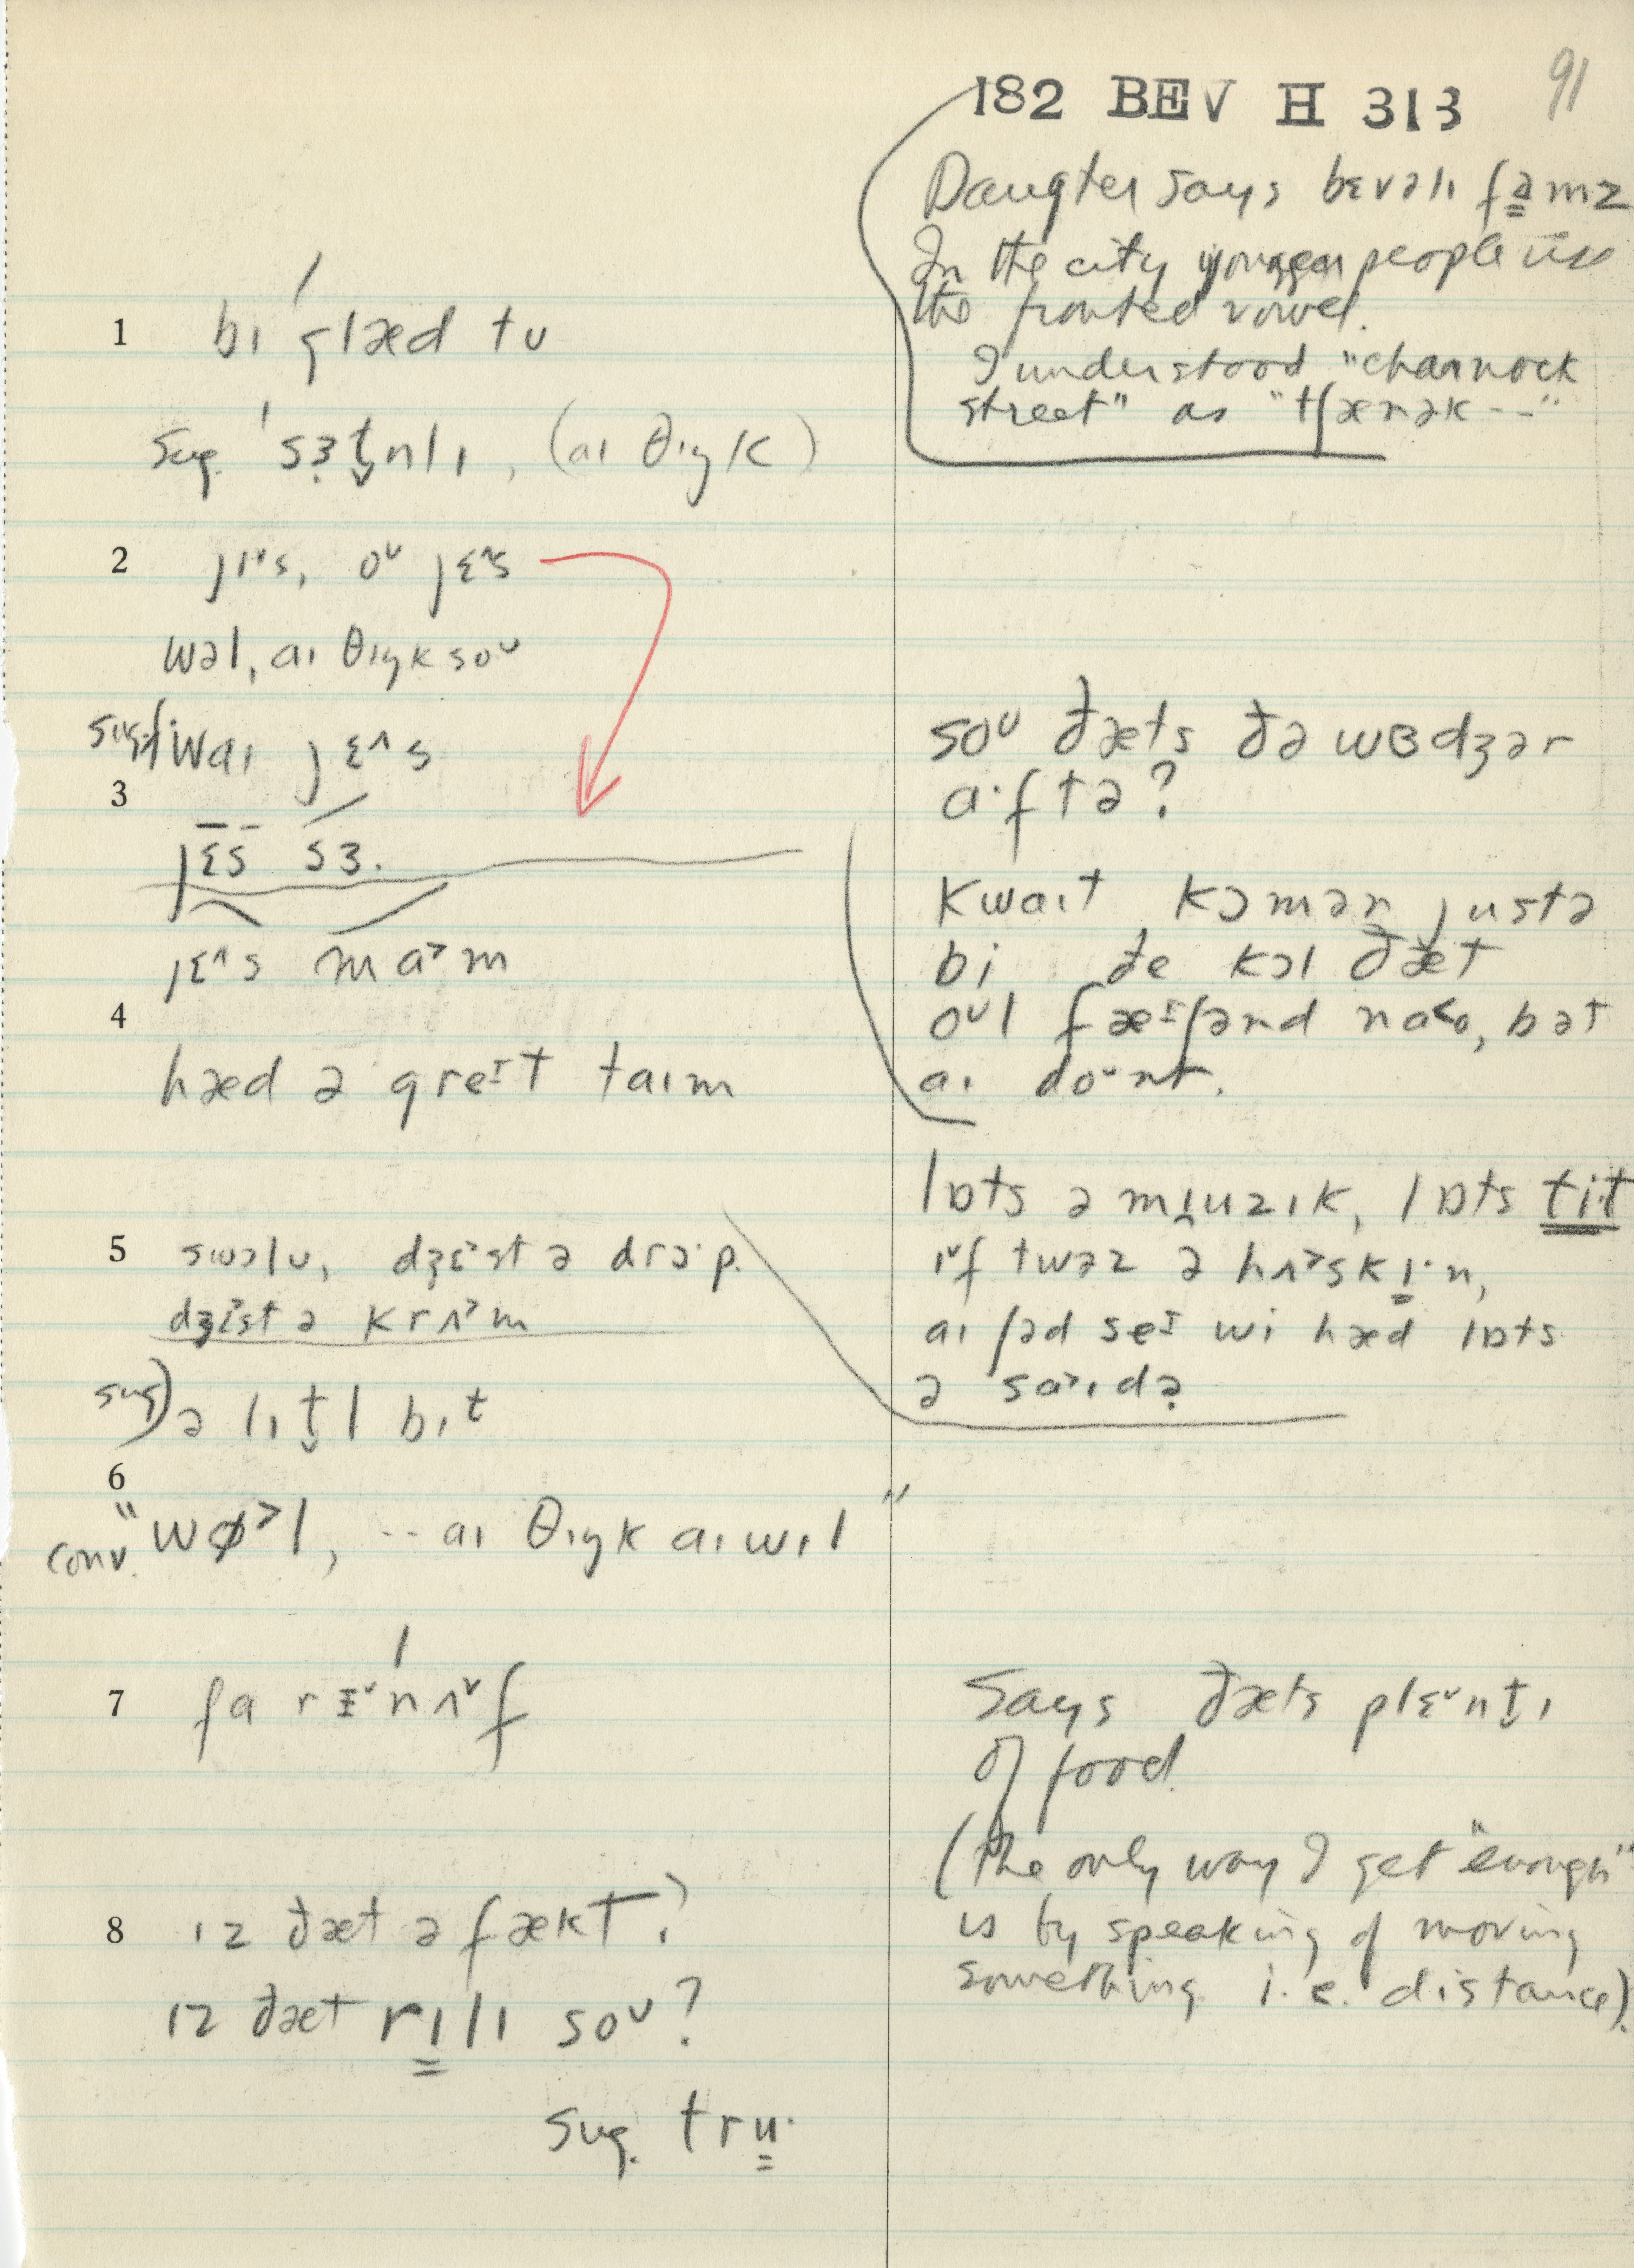 182 BEV H 313
91
Daugter says bɛvəlɪ fa̳mz
In the city younger people use
the fronted vowel.
I understood "charnock
street" as "tʃærnək --"
1 bɪ glæd tʊ
sug. 'sɜt̬nlɪ, (aɪ θɪŋk)
2 jɪˑs, oᴜ jɛ^s
wəl, aɪ θɪŋk soᴜ
sug) waɪ jɛ^s
3
jɛs sɜ.
jɛ^s ma>m
4
hæd ə greɪt taɪm
5 swɔlʊ, dʒɛst ə drɔˑp.
dʒɛst ə krʌ>m
sug) ə lɪt̬l bɪt
6
conv. "wø>l, -- aɪ θɪŋk aɪ wɪl"
7 fa rɪˇnʌˇf
8 ɪz ðæt ə fækt?
ɪz ðæt rɪ̳lɪ soᴜ?
sug. tru̳ˑ
soᴜ ðæts ðə wɞdʒər
aˑftə?
kwaɪt kɔmən justə
bi ðe kɔl ðæt
oᴜl fæɪʃənd naᴜ, bət
aɪ doᴜnt.
lɒts ə mjuzɪk, lɒts tit
ɪˇf twəz ə hʌ>skɪˑn,
aɪ ʃəd seɪ wi hæd lɒts
ə sa>ɪdə
Says ðæts plɛˇnt̬ɪ
of food
(the only way I get "enough"
is by speaking of moving
something i.e. distance).